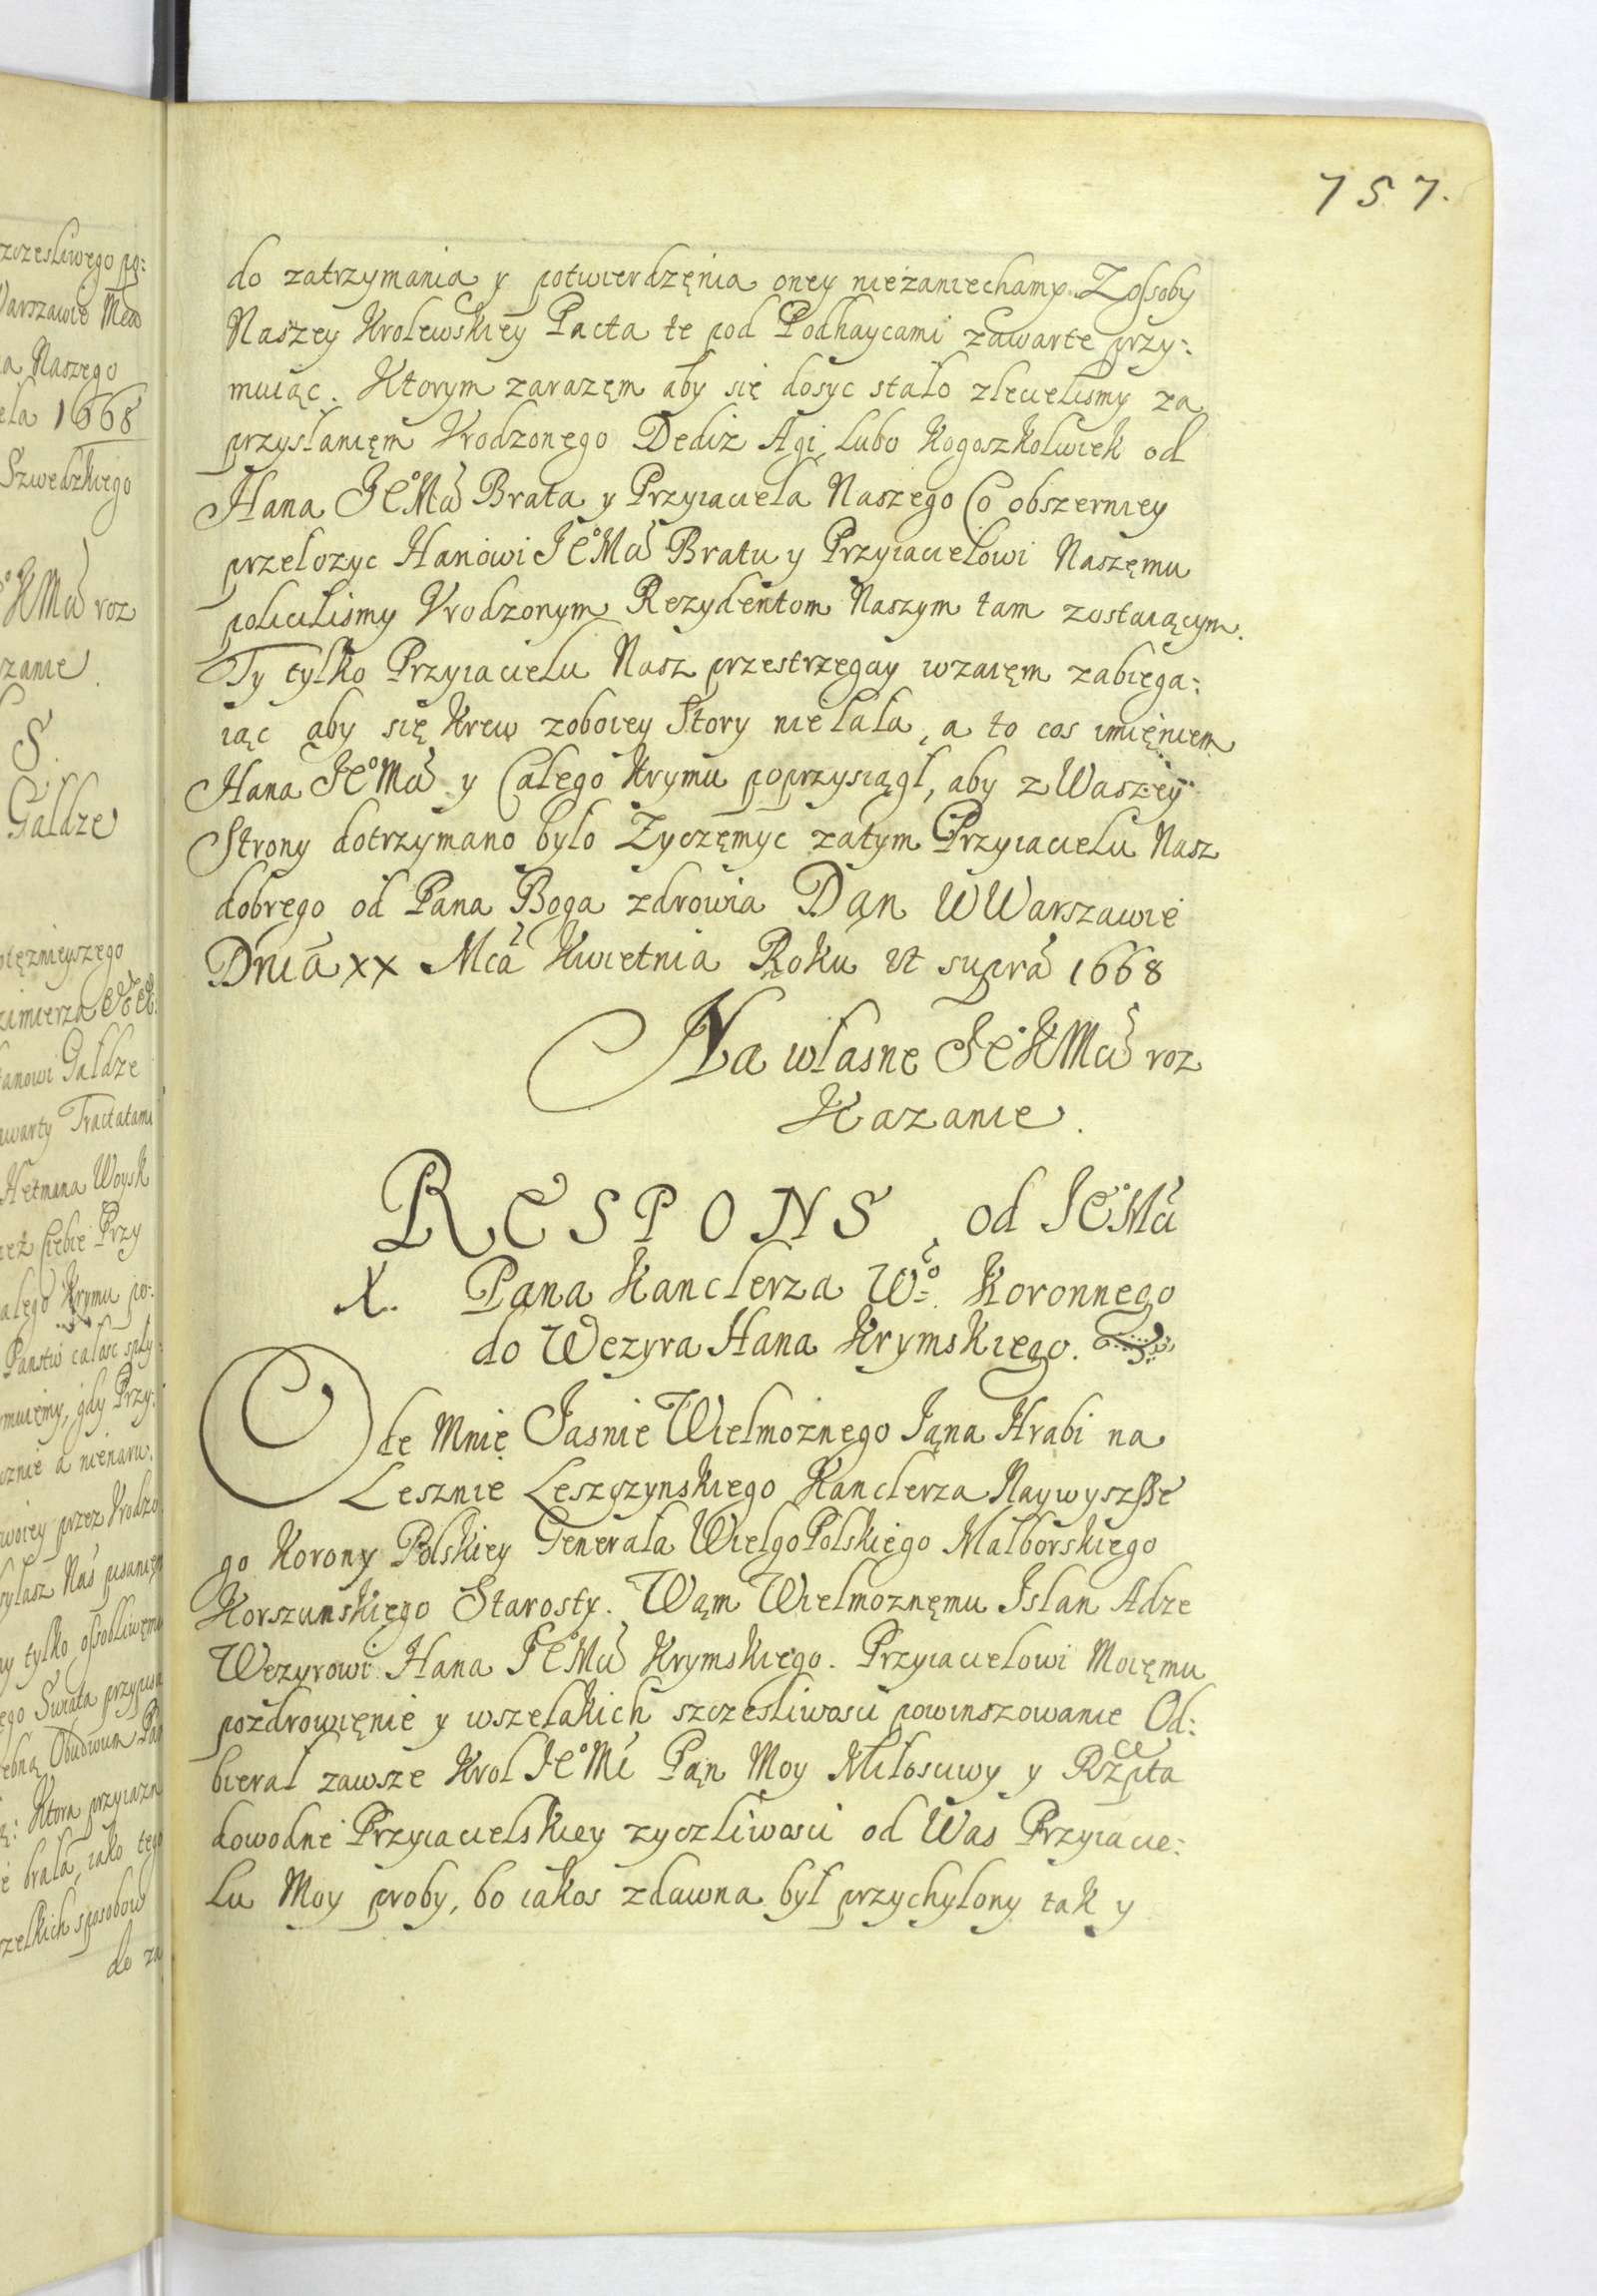 757.
do zatrzymania y potwierdzęnia oney niezaniechamy. Zossoby
Naszey Krolewskiey Pacta te pod Podhaycami zawarte przy:
muiąc. Ktorym zarazęm aby się dosyc stało zlecielismy za
przysłanięm Vrodzonego Dediz Agi, lubo kogoszkolwiek od
Hana JeoMci Brata y Przyiaciela Naszego Co obszerniey
przelozyc Hanowi JeoMci Bratu y Przyiacielowi Naszęmu
policilismy Vrodzonym Rezydentom Naszym tam zostaiącym.
Ty tylko Przyiacielu Nasz przestrzegay wzaięm zabiega:
iąc aby się Krew zoboiey Story nie lała, a to cos imięniem
Hana JeoMci y Całego Krymu poprzysiągł, aby z Waszey
Strony dotrzymano było Zyczęmyc zatym Przyiacielu Nasz
dobrego od Pana Boga zdrowia Dąn W Warszawie
Dnia xx Mca Kwietnia Roku vt supra 1668
Na własne JeKMci roz
Kazanie.
RESPONS od JeoMci
X. Pana Kanclerza Wo Koronnego
do Wezyra Hana Krymskiego.
Ode Mnię Jasnie Wielmoznego Jąna Hrabi na
Lesznie Leszczynskiego Kanclerza Naywyszsse
go Korony Polskiey Generała WielgoPolskiego Malborskiego
Korszunskięgo Starosty. Wąm Wielmoznęmu Islan Adze
Wezyrowi Hana JeoMci Krymskiego. Przyiacielowi Moięmu
pozdrowięnie y wszelakich szczesliwosci powinszowanie Od:
bierał zawsze Krol JeoMć Pąn Moy Miłosciwy y Rzpta
dowodne Przyiacielskiey zyczliwosci od Was Przyiacie:
lu Moy proby, bo iakos zdawna był przychylony tak y